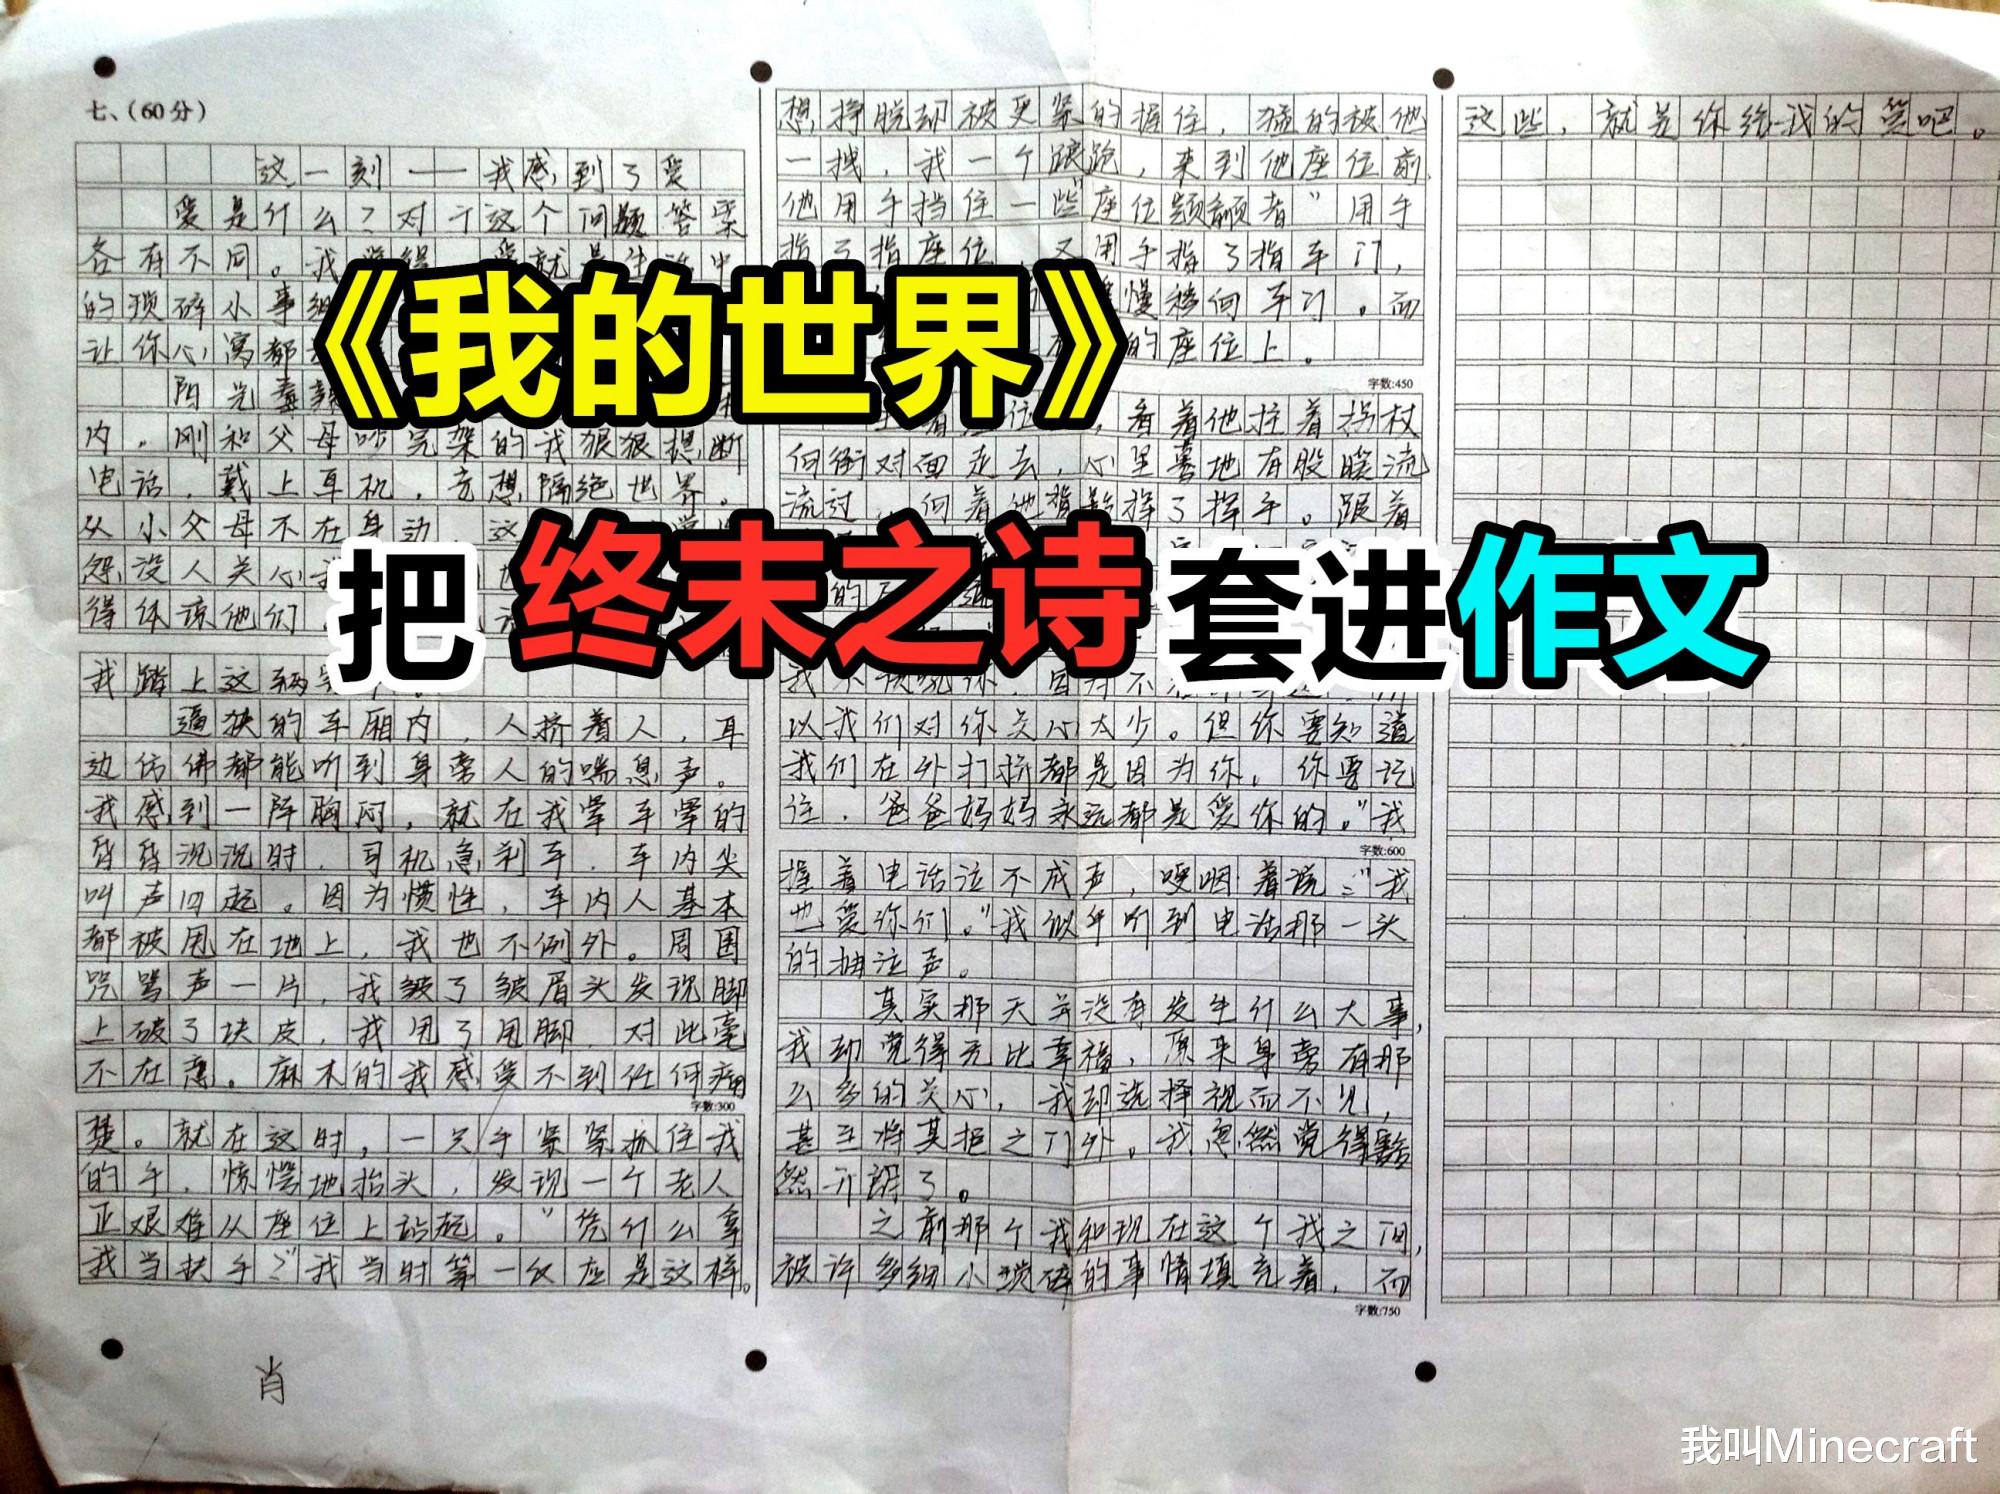 七、（60分）
这一刻——我感到了爱
爱是什么？对于这个问题答案
各有不同。我觉得，爱就是生活中
的琐碎小事
让你心窝都
阳光
内。刚和父母吵完架的我狠狠掐断
电话，戴上耳机，竟想隔绝世界。
从小父母不在身边，这
怨没人关心我
得体谅他们
我踏上这辆
逼狭的车厢内，人挤着人，耳
边仿佛都能听到身旁人的喘息声。
我感到一阵胸闷，就在我晕车晕的
昏昏沉沉时，司机急刹车，车内尖
叫声四起。因为惯性，车内人基本
都被甩在地上，我也不例外。周围
咒骂声一片，我皱了皱眉头发现脚
上破了块皮，我甩了甩脚，对此毫
不在意。麻木的我感受不到任何痛
字数:300
楚。就在这时，一只手紧紧抓住我
的手，惊愕地抬头，发现一个老人
正艰难从座位上站起。“凭什么拿
我当扶手？”我当时第一反应是这样。
想挣脱却被更紧的握住，猛的被他
一拽，我一个踉跄，来到他座位前，
他用手挡住一些“座位觊觎者”用手
指了指座位，又用手指了指车门，
慢移向车门。而
的座位上。
字数:450
看着他拄着拐杖
向街对面走去，心里蓦地有股暖流
流过，向着他背影挥了挥手。跟着
的
以我们对你关心太少。但你要知道
我们在外打拼都是因为你，你要记
住，爸爸妈妈永远都是爱你的。”我
字数:600
握着电话泣不成声，哽咽着说：“我
也爱你们。”我似乎听到电话那一头
的抽泣声。
其实那天并没有发生什么大事，
我却觉得无比幸福，原来身旁有那
么多的关心，我却选择视而不见，
甚至将其拒之门外。我忽然觉得豁
然开朗了。
之前那个我和现在这个我之间，
被许多细小琐碎的事情填充着，而
字数:750
这些，就是你给我的爱吧。
《我的世界》
把终末之诗套进作文
肖
我叫Minecraft